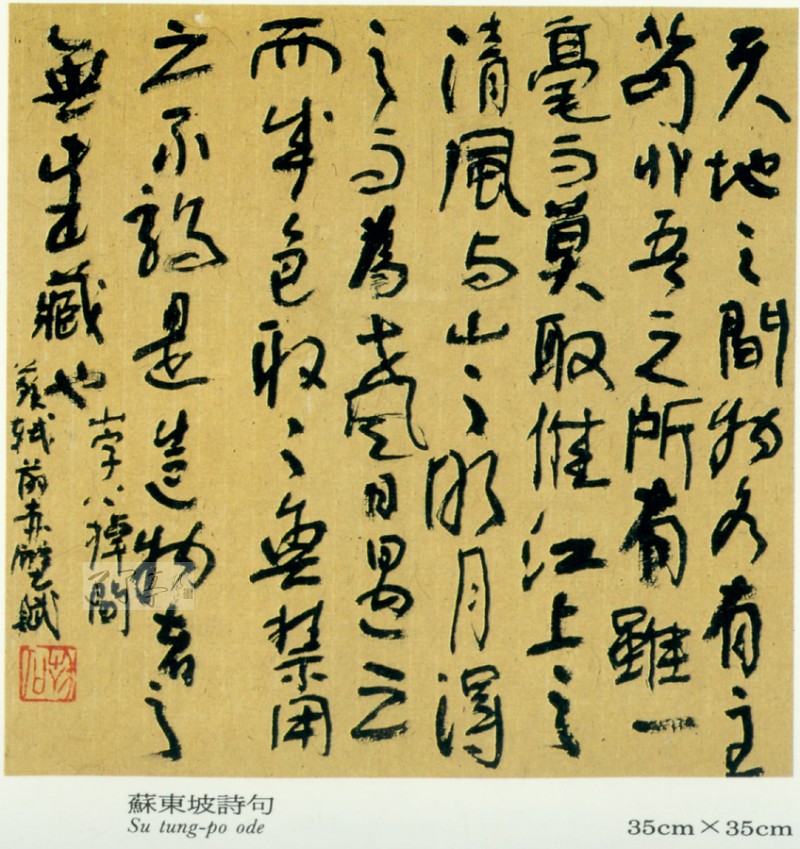 天地之間物各有主
苟非吾之所有雖一
毫而莫取惟江上之
清風与山之明月得
之而為聲目遇之
而成色取之無禁用
之不竭是造物者之
無盡藏也
蘇軾前赤壁賦
蘇東坡詩句
Su tung-po ode
35cm×35cm